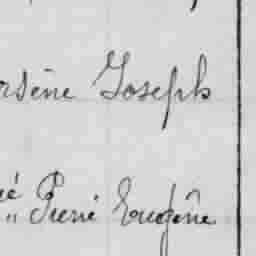 rsène Joseph
é
" Pierré Eugène